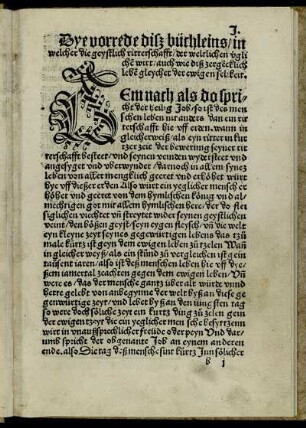 I.
Dye vorrede disz büchleins/in
welcher die geystlich ritterschafft/der weltlichen vgli⸗
chēt wirt/auch wie disz zergēcklich
lebē gleycher der ewigen selikeit.
Em nach als do spri⸗
cht der heilig Job/so ist des men
schen leben nit anders dan ein rit
terschafft hie vff erden. wann in
gleicherweisz/als eyn ritter in kurt
zer zeit der bewerung seyner rit⸗
terschafft besteet/vnd seynen veinden wydersteet vnd
angesyget vnd vberwynder/darnoch in allem syneʒ
leben von aller mengklich geeret vnd erhöhet wirt
hye vff diszer erden Also wirt eyn yeglicher mensch er
höhet vnd geeret von dem hymlischen könig vnd al⸗
mechtigen got mit allem hymlischen here/der do fles
siglichen viechtet vñ streytet wider seynen geystlichen
veint/den bösen geyst/seyn eygen fleysch/vñ die welt
eyn kleyne zeyt seynes gegewirtigen lebens das tzů
mal kurtz ist geyn dem ewigen leben zů rzelen Wañ
in gleicher weysz/als ein stūnd zů vergleichen ist eyn
tausent iaren/also ist des menschen leben hie vff die⸗
sem iamertal zeachten gegen dem ewigen leben/Vñ
were es/das der mensche gantz über alt würde vund
herte gelebt von anbegynne der welt bysz an diese ge
genwürtige zeyt/vnd lebet bysz an den iüngsten tag
so were doch sölliche zeyt ein kurtz ding zů zelen gein
der ewigen tzeyt die ein yeglicher mensche besytzenn
wirt in vnausprechlicher freüde oder peyn Vnd dar⸗
umb spricht der obgenante Job an eynem anderen
ende. also Die tag des mensche sint kurtz Jnn sölicher
b j